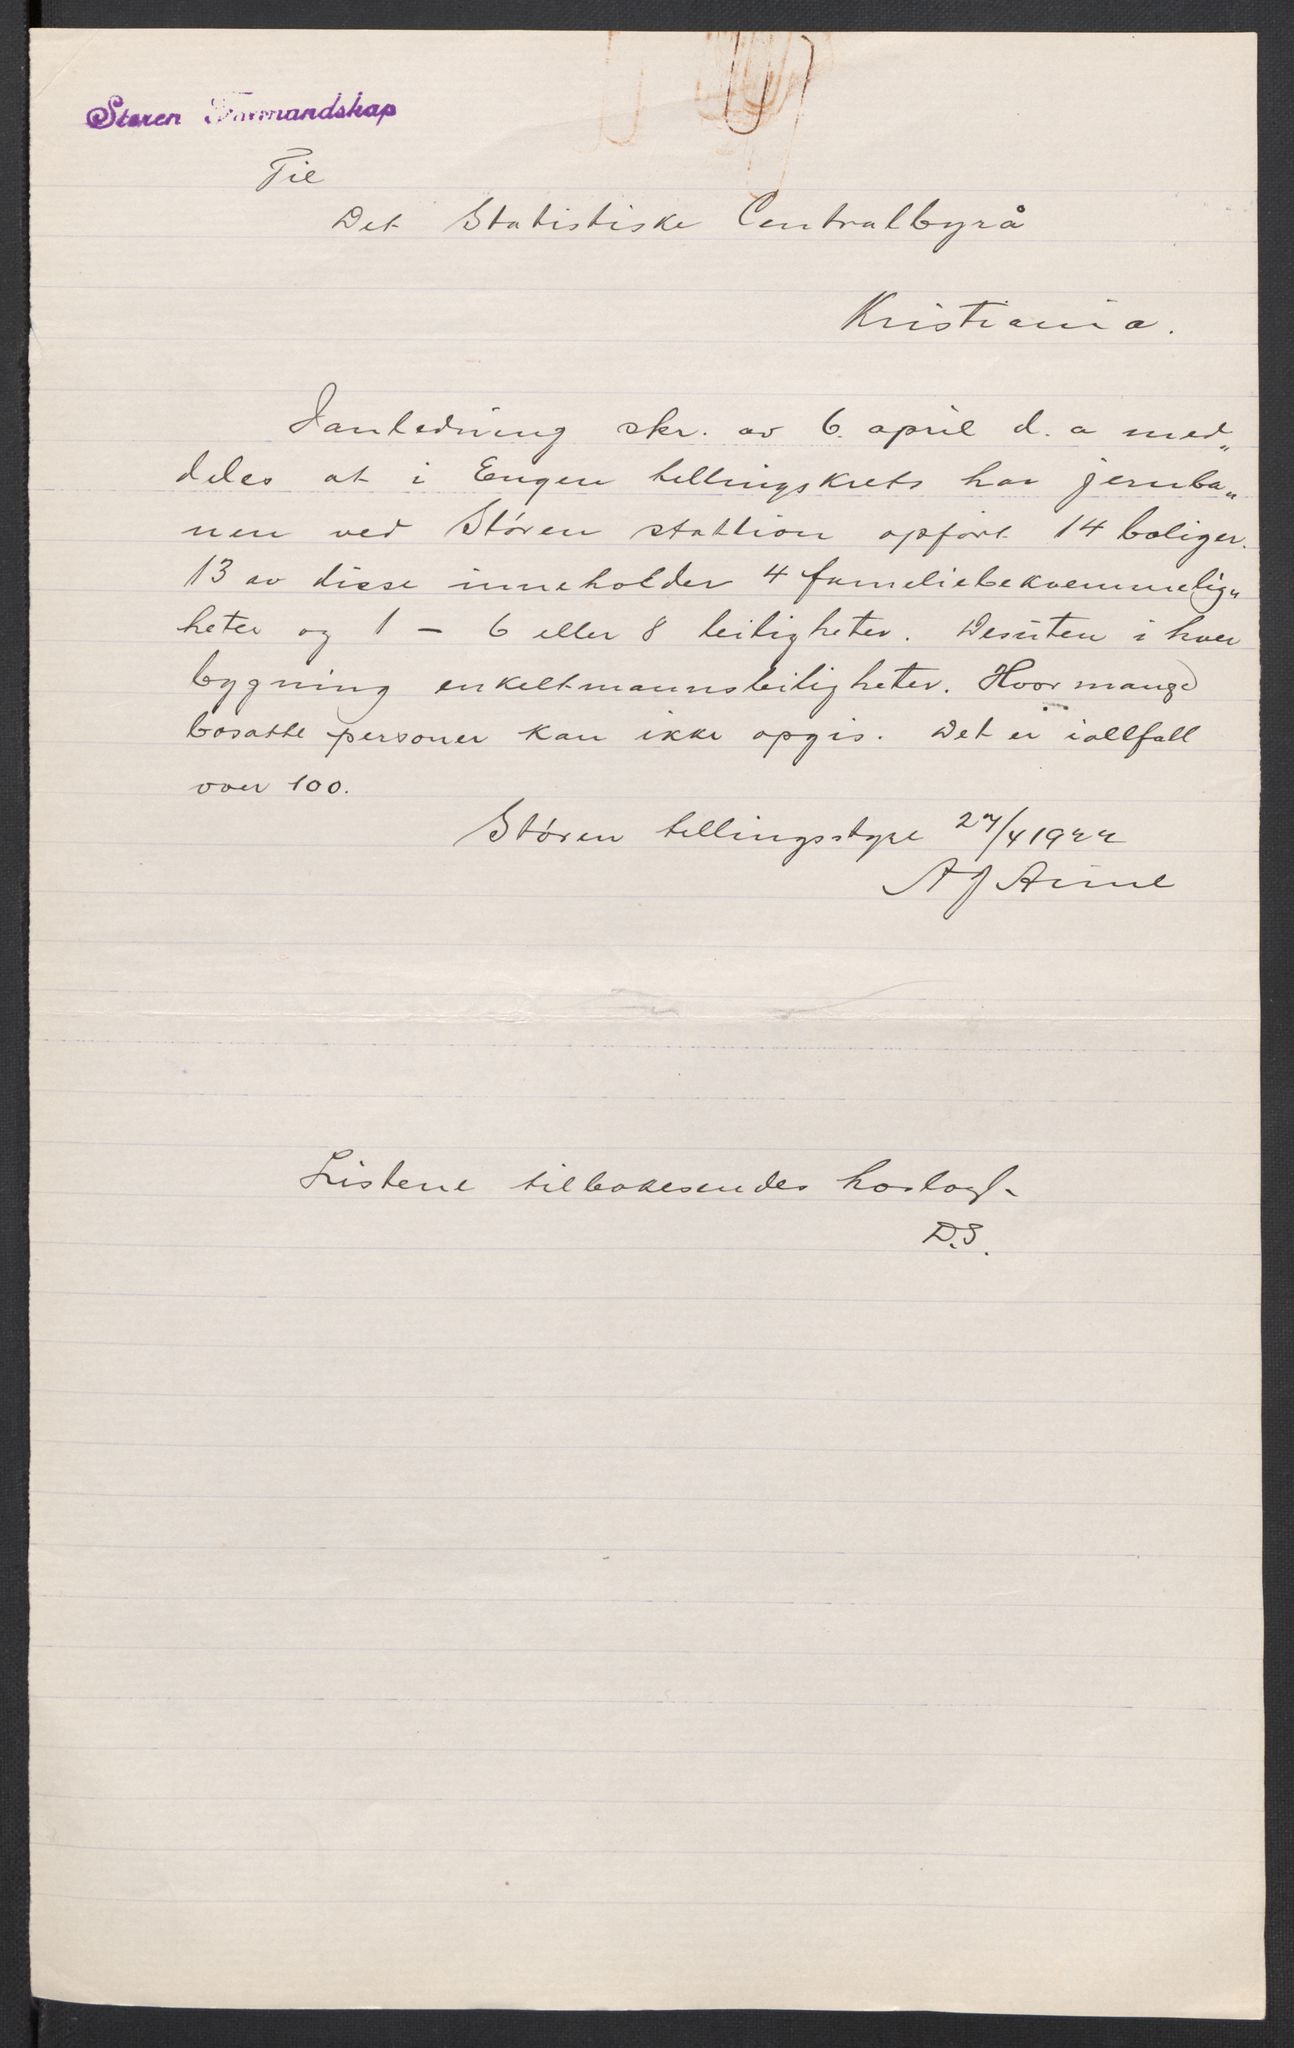 Støren Formandskap
Til
Det Statistiske Centralbyrå
Kristiania.
I anledning skr. av 6. april d. a med„
deles at i Engen tellingskrets har jernba„
nen ved Støren stattion opført 14 boliger.
13 av disse inneholder 4 fameliebekvemmelig„
heter og 1 – 6 eller 8 leiligheter. Desuten i hver
bygning enkeltmannsleiligheter. Hvor mange
bosatte personer kan ikke opgis. Det er iallfall
over 100.
Støren tellingsstyre 27/4 1922
A J
Listene tilbakesendes hoslagt.
D.S.